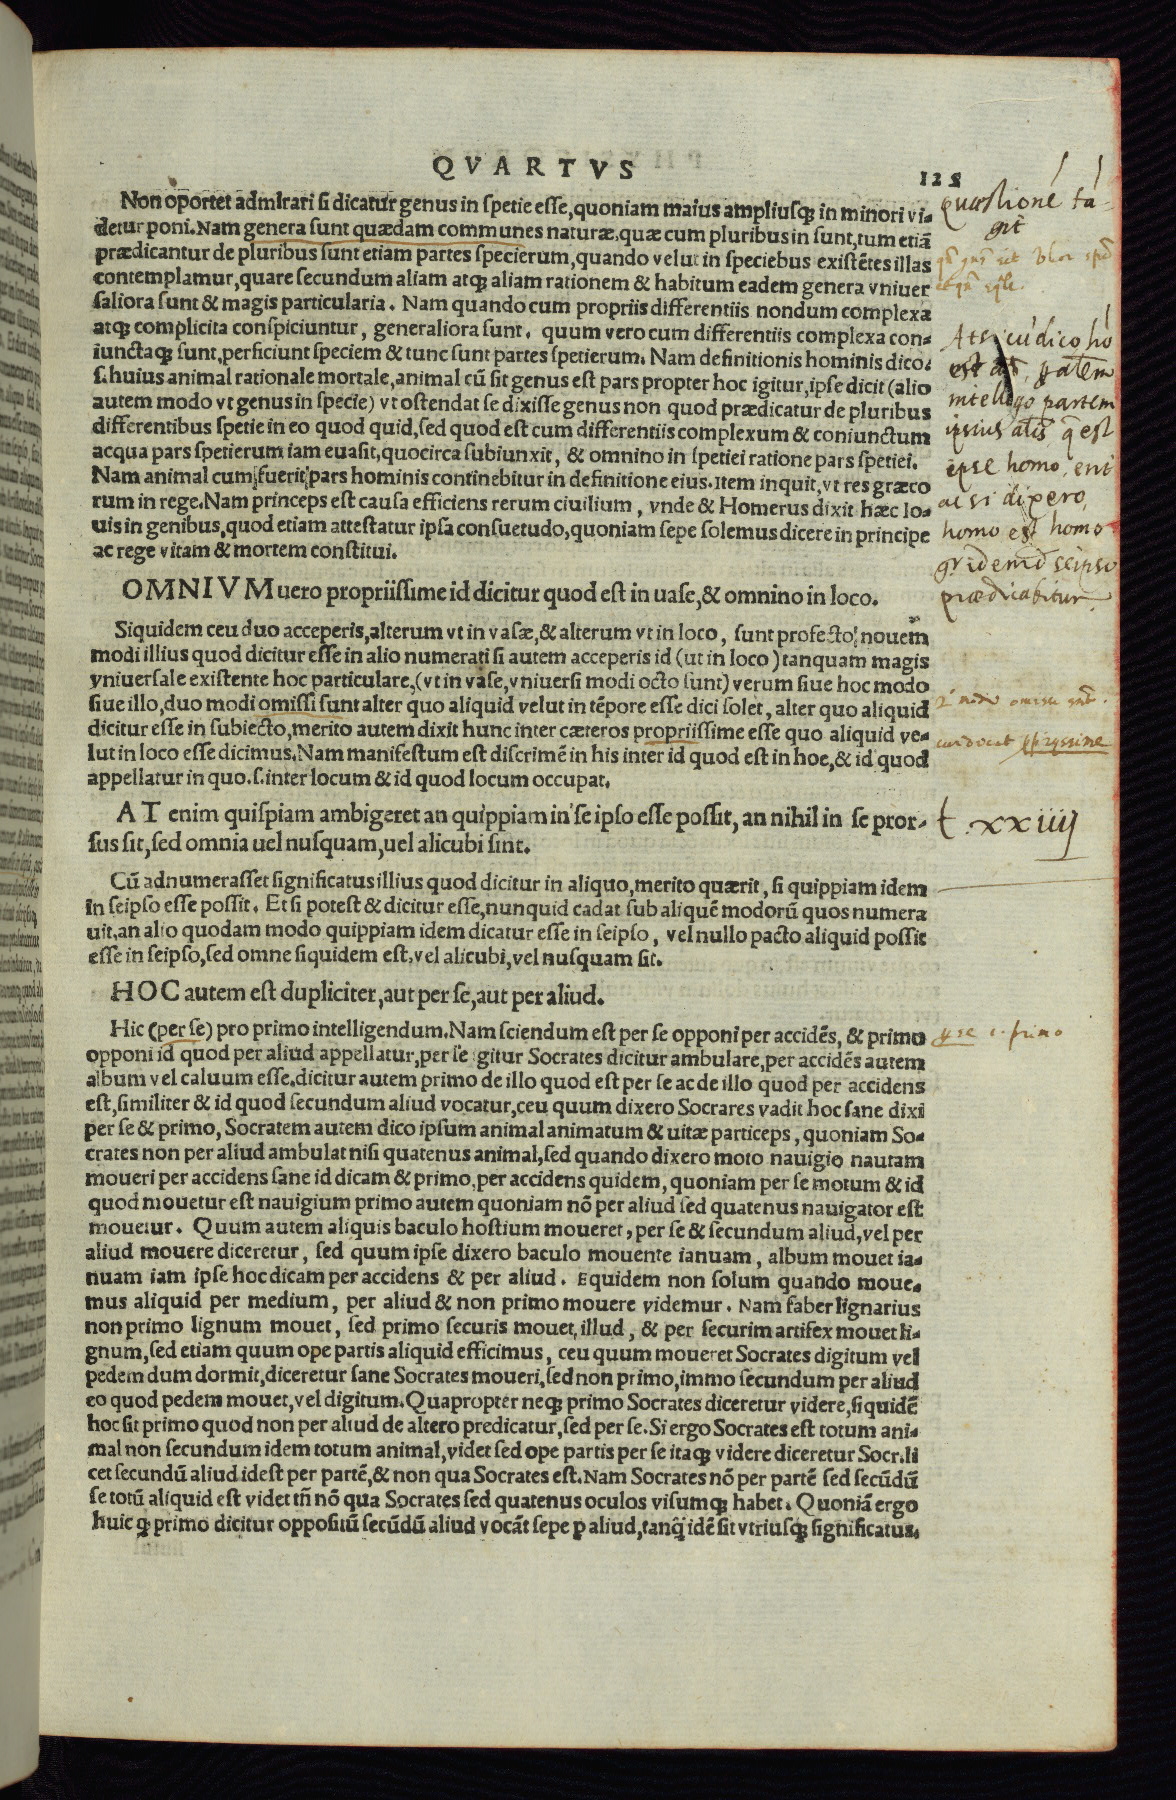 QVARTVS
125
Non oportet admirari si dicatur genus in spetie esse, quoniam maius ampliusq; in minori vi-
detur poni. Nam genera sunt quædam communes naturæ, quæ cum pluribus in sunt, tum etiā
prædicantur de pluribus sunt etiam partes specierum, quando velut in speciebus existētes illas
contemplamur, quare secundum aliam atq; aliam rationem & habitum eadem genera vniuer
saliora sunt & magis particularia. Nam quando cum propriis differentiis nondum complexa
atq; complicita conspiciuntur, generaliora sunt. quum vero cum differentiis complexa con-
iunctaq; sunt, perficiunt speciem & tunc sunt partes spetierum. Nam definitionis hominis dico.
s. huius animal rationale mortale, animal cū sit genus est pars propter hoc igitur, ipse dicit (alio
autem modo vt genus in specie) vt ostendat se dixisse genus non quod prædicatur de pluribus
differentibus spetie in eo quod quid, sed quod est cum differentiis complexum & coniunctum
acqua pars spetierum iam euasit, quocirca subiunxit, & omnino in spetiei ratione pars spetiei.
Nam animal cum fuerit pars hominis continebitur in definitione eius. Item inquit, vt res græco
rum in rege. Nam princeps est causa efficiens rerum ciuilium, vnde & Homerus dixit hæc Io-
uis in genibus, quod etiam attestatur ipsa consuetudo, quoniam sepe solemus dicere in principe
ac rege vitam & mortem constitui.
OMNIVM uero propriissime id dicitur quod est in uase, & omnino in loco.
Siquidem ceu duo acceperis, alterum vt in vasæ, & alterum vt in loco, sunt profecto nouem
modi illius quod dicitur esse in alio numerati si autem acceperis id (ut in loco) tanquam magis
vniuersale existente hoc particulare, (vt in vase, vniuersi modi octo sunt) verum siue hoc modo
siue illo, duo modi omissi sunt alter quo aliquid velut in tēpore esse dici solet, alter quo aliquid
dicitur esse in subiecto, merito autem dixit hunc inter cæteros propriissime esse quo aliquid ve-
lut in loco esse dicimus. Nam manifestum est discrimē in his inter id quod est in hoe, & id quod
appellatur in quo. s. inter locum & id quod locum occupat.
AT enim quispiam ambigeret an quippiam in se ipso esse possit, an nihil in se pror-
sus sit, sed omnia uel nusquam, uel alicubi sint.
Cū adnumerasset significatus illius quod dicitur in aliquo, merito quærit, si quippiam idem
in seipso esse possit. Et si potest & dicitur esse, nunquid cadat sub aliquē modorū quos numera
uit, an alio quodam modo quippiam idem dicatur esse in seipso, vel nullo pacto aliquid possit
esse in seipso, sed omne siquidem est, vel alicubi, vel nusquam sit.
HOC autem est dupliciter, aut per se, aut per aliud.
Hic (per se) pro primo intelligendum. Nam sciendum est per se opponi per accidēs, & primo
opponi id quod per aliud appellatur, per se gitur Socrates dicitur ambulare, per accidēs autem
album vel caluum esse. dicitur autem primo de illo quod est per se ac de illo quod per accidens
est, similiter & id quod secundum aliud vocatur, ceu quum dixero Socrares vadit hoc sane dixi
per se & primo, Socratem autem dico ipsum animal animatum & uitæ particeps, quoniam So-
crates non per aliud ambulat nisi quatenus animal, sed quando dixero moto nauigio nautam
moueri per accidens sane id dicam & primo, per accidens quidem, quoniam per se motum & id
quod mouetur est nauigium primo autem quoniam nō per aliud sed quatenus nauigator est
mouetur. Quum autem aliquis baculo hostium moueret, per se & secundum aliud, vel per
aliud mouere diceretur, sed quum ipse dixero baculo mouente ianuam, album mouet ia-
nuam iam ipse hoc dicam per accidens & per aliud. Equidem non solum quando moue-
mus aliquid per medium, per aliud & non primo mouere videmur. Nam faber lignarius
non primo lignum mouet, sed primo securis mouet illud, & per securim artifex mouet li-
gnum, sed etiam quum ope partis aliquid efficimus, ceu quum moueret Socrates digitum vel
pedem dum dormit, diceretur sane Socrates moueri, sed non primo, immo secundum per aliud
eo quod pedem mouet, vel digitum. Quapropter neq; primo Socrates diceretur videre, siquidē
hoc sit primo quod non per aliud de altero predicatur, sed per se. Si ergo Socrates est totum ani-
mal non secundum idem totum animal, videt sed ope partis per se itaq; videre diceretur Socr. li
cet secundū aliud idest per partē, & non qua Socrates est. Nam Socrates nō per partē sed secūdū
se totū aliquid est videt tñ nō qua Socrates sed quatenus oculos visumq; habet. Quoniā ergo
huic q; primo dicitur oppositū secūdū aliud vocāt sepe p aliud, tanq̃ idē sit vtriusq; significatus.
quæstionē tā-
git
At si cū dico hō
est
intelligo partem
ipsius q̃ est
ipse homo, erit
ac si dixero
homo est homo
seipso
prædicabitur
2 modi omissi
propryssime
t. xxiiij
p se i. primo